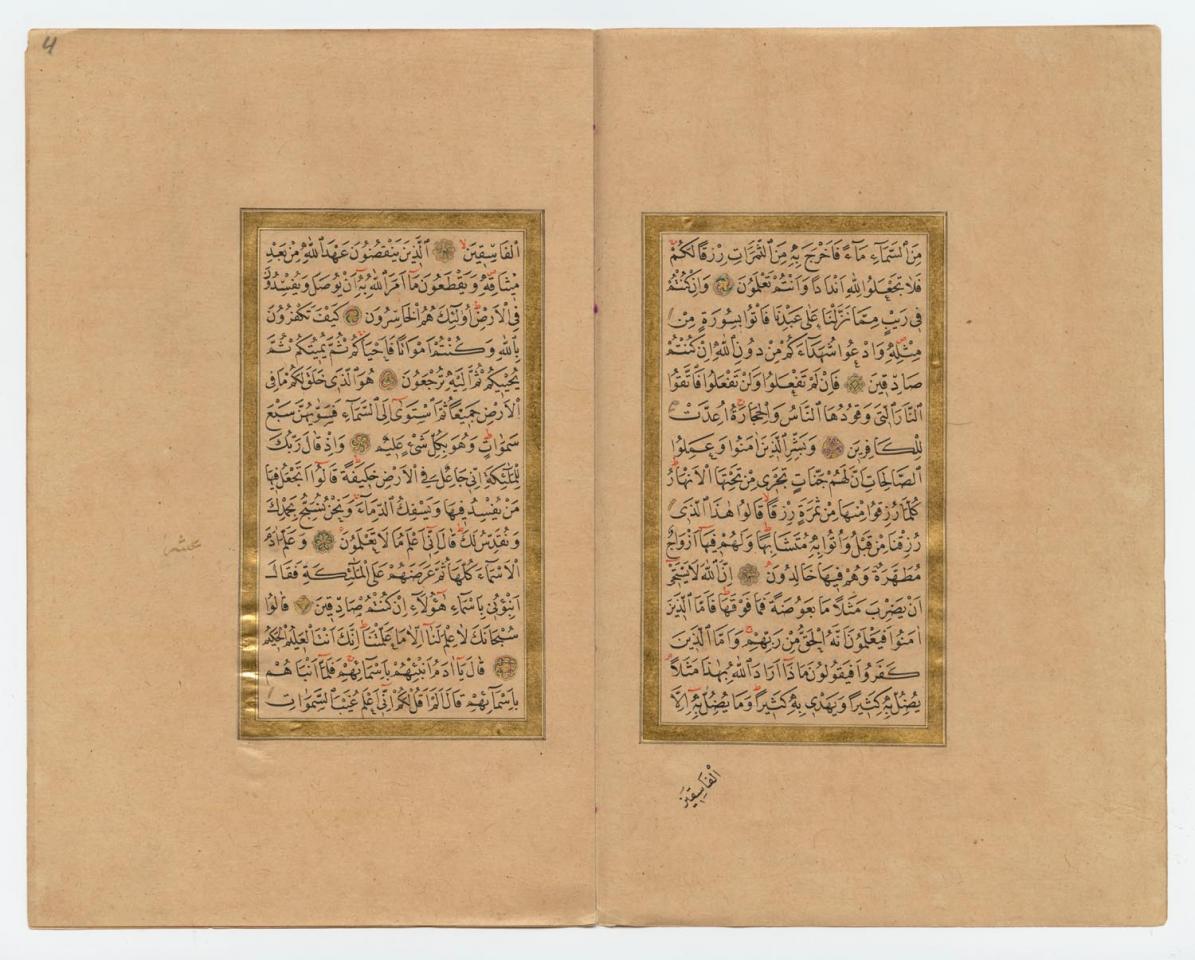 مِنَ السَّمَاءِ مَاءً فَاَخْرَجَ بِهِ مِنَ الثَّمَرَاتِ رِزْقًا لَكُمْ
فَلَا تَجْعَلُوا لِلّٰهِ اَنْدَادًا وَاَنْتُمْ تَعْلَمُونَ وَاِنْ كُنْتُمْ
فِى رَيْبٍ مِمَّا نَزَّلْنَا عَلٰى عَبْدِنَا فَاْتُوا بِسُورَةٍ مِنْ
مِثْلِهِ وَادْعُوا شُهَدَاءَكُمْ مِنْ دُونِ اللّٰهِ اِنْ كُنْتُمْ
صَادِقِينَ فَاِنْ لَمْ تَفْعَلُوا وَلَنْ تَفْعَلُوا فَاتَّقُوا
النَّارَ الَّتِى وَقُودُهَا النَّاسُ وَالْحِجَارَةُ اُعِدَّتْ
لِلْكَافِرِينَ وَبَشِّرِ الَّذِينَ اٰمَنُوا وَعَمِلُوا
الصَّالِحَاتِ اَنَّ لَهُمْ جَنَّاتٍ تَجْرِى مِنْ تَحْتِهَا الْاَنْهَارُ
كُلَّمَا رُزِقُوا مِنْهَا مِنْ ثَمَرَةٍ رِزْقًا قَالُوا هٰذَا الَّذِى
رُزِقْنَا مِنْ قَبْلُ وَاُتُوا بِهِ مُتَشَابِهًا وَلَهُمْ فِيهَا اَزْوَاجٌ
مُطَهَّرَةٌ وَهُمْ فِيهَا خَالِدُونَ اِنَّ اللّٰهَ لَا يَسْتَحْيِ
اَنْ يَضْرِبَ مَثَلًا مَا بَعُوضَةً فَمَا فَوْقَهَا فَاَمَّا الَّذِينَ
اٰمَنُوا فَيَعْلَمُونَ اَنَّهُ الْحَقُّ مِنْ رَبِّهِمْ وَاَمَّا الَّذِينَ
كَفَرُوا فَيَقُولُونَ مَاذَا اَرَادَ اللّٰهُ بِهٰذَا مَثَلًا
يُضِلُّ بِهِ كَثِيرًا وَيَهْدِى بِهِ كَثِيرًا وَمَا يُضِلُّ بِهِ اِلَّا
الْفَاسِقِينَ
4
الْفَاسِقِينَ الَّذِينَ يَنْقُضُونَ عَهْدَ اللّٰهِ مِنْ بَعْدِ
مِيثَاقِهِ وَيَقْطَعُونَ مَا اَمَرَ اللّٰهُ بِهِ اَنْ يُوصَلَ وَيُفْسِدُونَ
فِى الْاَرْضِ اُولٰئِكَ هُمُ الْخَاسِرُونَ كَيْفَ تَكْفُرُونَ
بِاللّٰهِ وَكُنْتُمْ اَمْوَاتًا فَاَحْيَاكُمْ ثُمَّ يُمِيتُكُمْ ثُمَّ
يُحْيِيكُمْ ثُمَّ اِلَيْهِ تُرْجَعُونَ هُوَ الَّذِى خَلَقَ لَكُمْ مَا فِى
الْاَرْضِ جَمِيعًا ثُمَّ اسْتَوٰى اِلَى السَّمَاءِ فَسَوّٰيهُنَّ سَبْعَ
سَمٰوَاتٍ وَهُوَ بِكُلِّ شَىْءٍ عَلِيمٌ وَاِذْ قَالَ رَبُّكَ
لِلْمَلٰئِكَةِ اِنِّى جَاعِلٌ فِى الْاَرْضِ خَلِيفَةً قَالُوا اَتَجْعَلُ فِيهَا
مَنْ يُفْسِدُ فِيهَا وَيَسْفِكُ الدِّمَاءَ وَنَحْنُ نُسَبِّحُ بِحَمْدِكَ
وَنُقَدِّسُ لَكَ قَالَ اِنِّى اَعْلَمُ مَا لَا تَعْلَمُونَ وَعَلَّمَ اٰدَمَ
الْاَسْمَاءَ كُلَّهَا ثُمَّ عَرَضَهُمْ عَلَى الْمَلٰئِكَةِ فَقَالَ
اَنْبِئُونِى بِاَسْمَاءِ هٰؤُلَاءِ اِنْ كُنْتُمْ صَادِقِينَ قَالُوا
سُبْحَانَكَ لَا عِلْمَ لَنَا اِلَّا مَا عَلَّمْتَنَا اِنَّكَ اَنْتَ الْعَلِيمُ الْحَكِيمُ
قَالَ يَا اٰدَمُ اَنْبِئْهُمْ بِاَسْمَائِهِمْ فَلَمَّا اَنْبَاَهُمْ
بِاَسْمَائِهِمْ قَالَ اَلَمْ اَقُلْ لَكُمْ اِنِّى اَعْلَمُ غَيْبَ السَّمٰوَاتِ
عشر